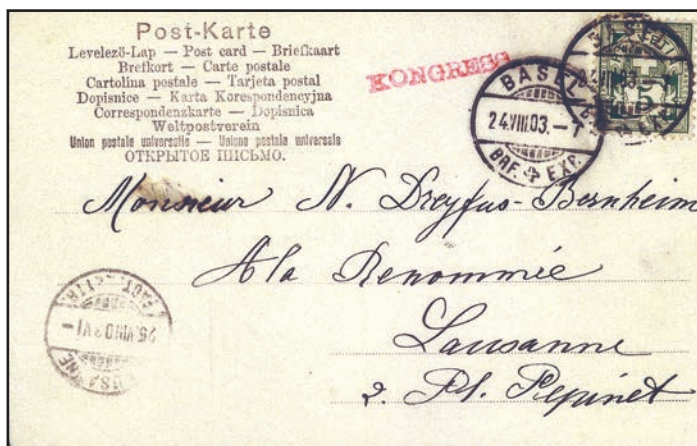 Post-Karte
Levelező-Lap — Post card — Briefkaart
Brefkort — Carte postale
Cartolina postale — Tarjeta postal
Dopisnice — Karta Korespondencyjna
Correspondenzkarte — Dopisnica
Weltpostverein
Union postale universelle — Unione postale universale
ОТКРЫТОЕ ПИСЬМО.
KONGRESS
BASEL
24.VIII.03.–7
BRF. EXP.
5
Monsieur N. Dreyfus-Bernheim
A la Renommée
Lausanne
2. Pl. Pépinet
25.VIII.03.VI–